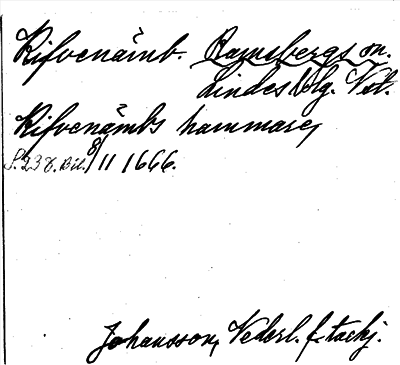 Rifvenämb. Ramsbergs sn.
Lindesbg. Vst.
Rifvenämbs hammare,
S. 238. Bil. 8/11 1666.
Johansson, Nederl. f. tackj.